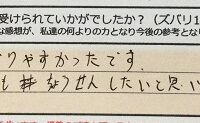 受けられていかがでしたか？（ズバリ1
な感想が、私達の何よりの力となり今後の参考となり
りやすかったです。
もちょうせんしたいと思い